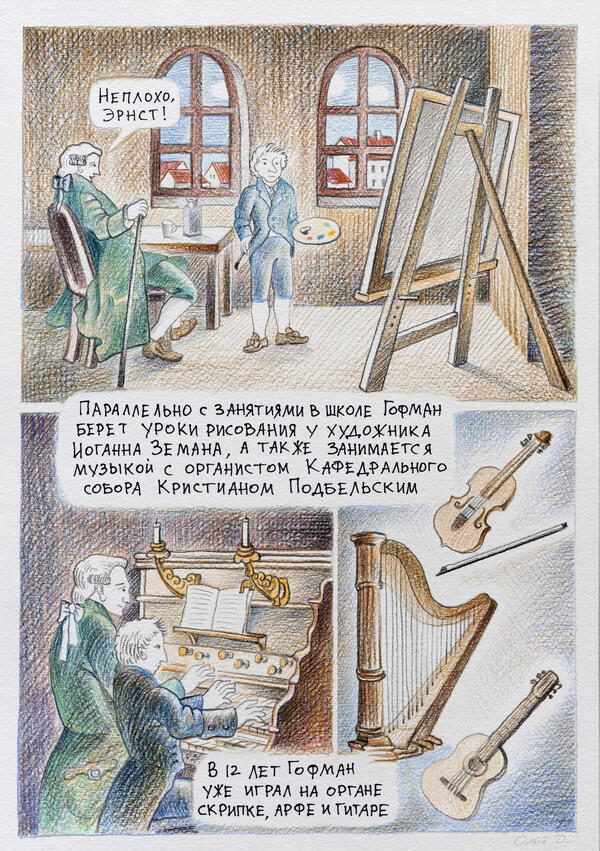 НЕПЛОХО,
ЭРНСТ!
ПАРАЛЛЕЛЬНО С ЗАНЯТИЯМИ В ШКОЛЕ ГОФМАН
БЕРЕТ УРОКИ РИСОВАНИЯ У ХУДОЖНИКА
ИОГАННА ЗЕМАНА, А ТАКЖЕ ЗАНИМАЕТСЯ
МУЗЫКОЙ С ОРГАНИСТОМ КАФЕДРАЛЬНОГО
СОБОРА КРИСТИАНОМ ПОДБЕЛЬСКИМ
В 12 ЛЕТ ГОФМАН
УЖЕ ИГРАЛ НА ОРГАНЕ
СКРИПКЕ, АРФЕ И ГИТАРЕ